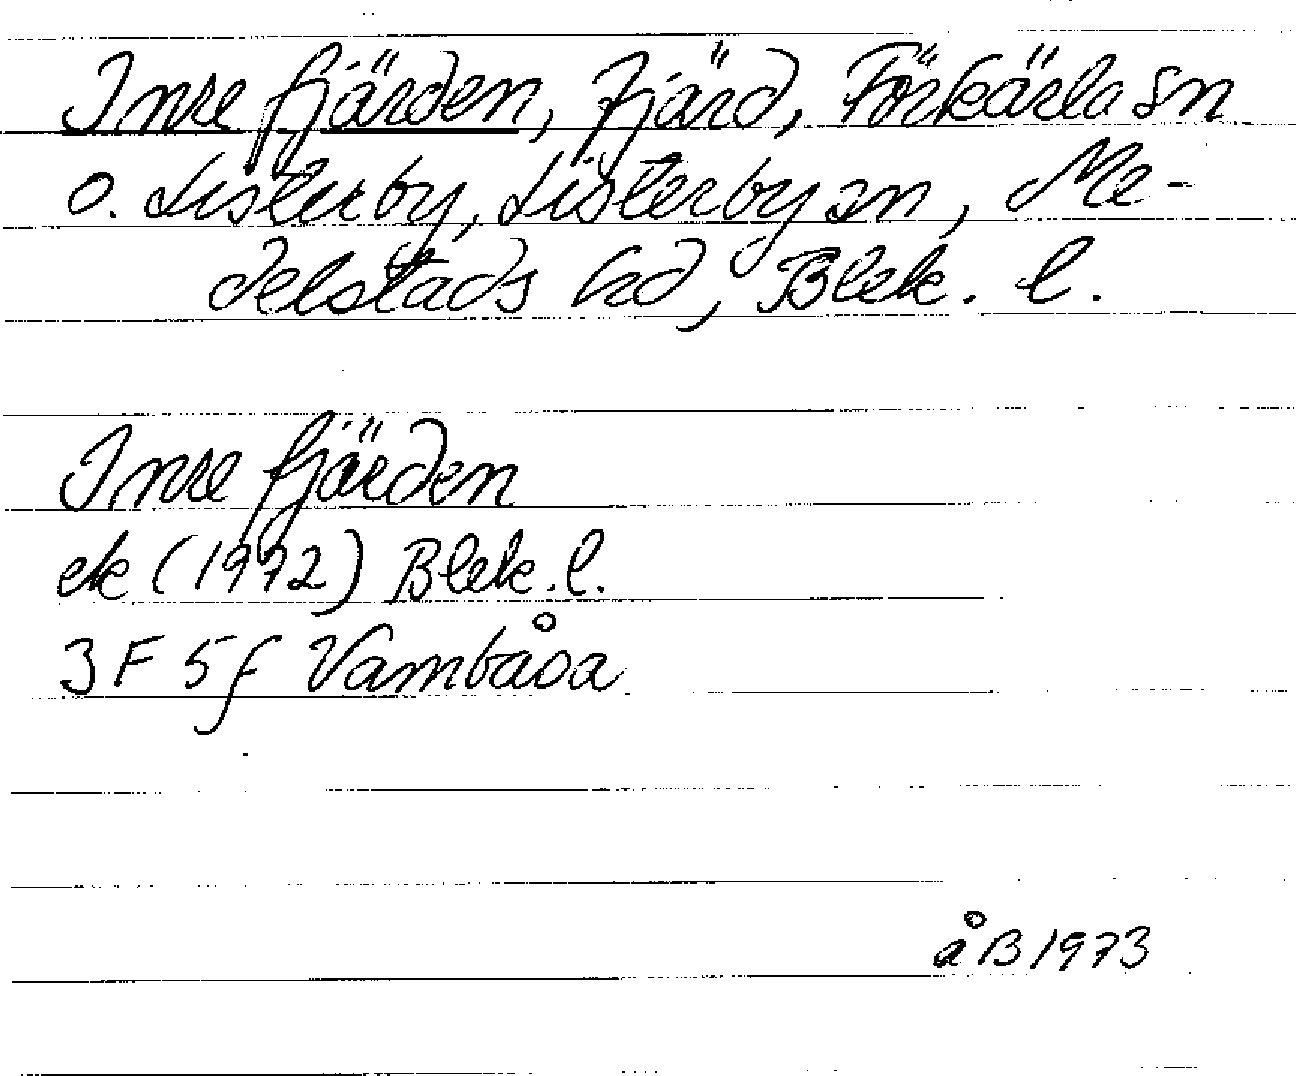 Inre fjärden, Fjärd, Förkärla sn
o. Listerby, Listerby sn, Me-
delstads hd, Blek. l.
Inre fjärden
ek (1972) Blek. l.
3 F 5 f Vambåsa
åB 1973